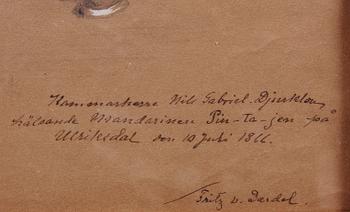 Kammarherre Nils Gabriel Djurklou,
hälsande Mandarinen Pin-ta-jen på
Ulriksdal den 10 Juli 1866.
Fritz v. Dardel.